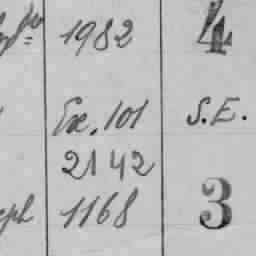 1982 4
Exe. 101 S.E.
2142
eph 1168 3